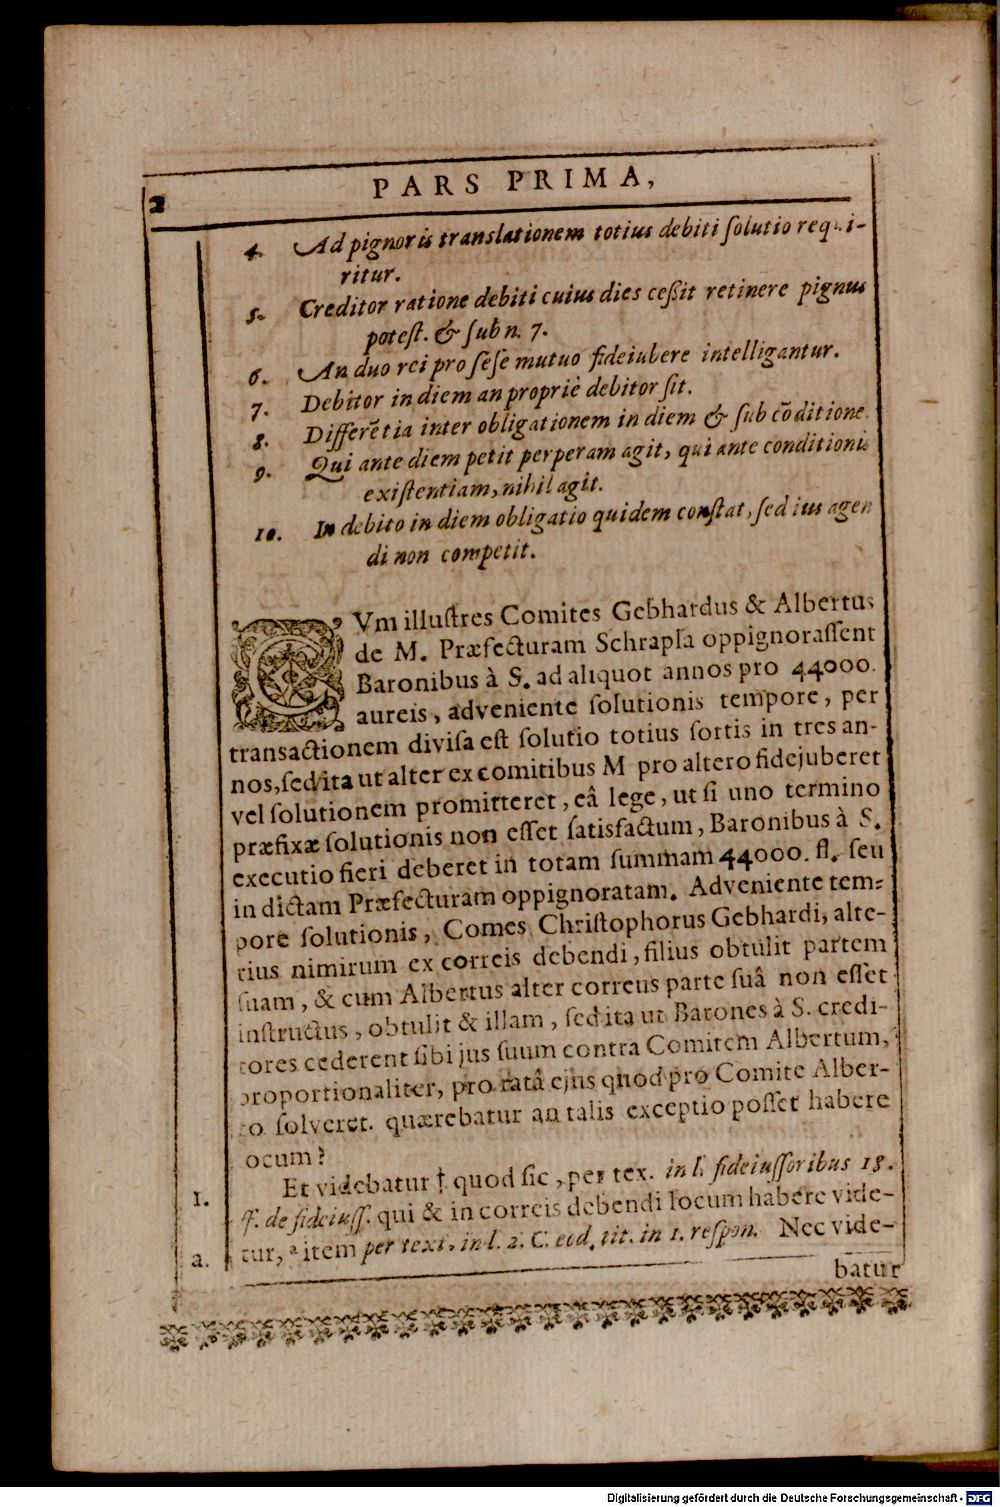 2
PARS PRIMA,
4. Ad pignoris translationem totius debiti ſolutio requi-
ritur.
5. Creditor ratione debiti cuius dies ceßit retinere pignus
poteſt. & ſub n. 7.
6. An duo rei pro ſeſe mutuo fideiubere intelligantur.
7. Debitor in diem an propriè debitor ſit.
8. Differētia inter obligationem in diem & ſub cōditione.
9. Qui ante diem petit perperam agit, qui ante conditionis
exiſtentiam, nihil agit.
10. In debito in diem obligatio quidem conſtat, ſed ius agen
di non competit.
CVm illuſtres Comites Gebhardus & Albertus
de M. Præfecturam Schrapla oppignoraſſent
Baronibus à S. ad aliquot annos pro 44000.
aureis, adveniente ſolutionis tempore, per
transactionem diviſa eſt ſolutio totius ſortis in tres an-
nos, ſed ita ut alter ex comitibus M pro altero fidejuberet
vel ſolutionem promitteret, eâ lege, ut ſi uno termino
præfixæ ſolutionis non eſſet ſatisfactum, Baronibus à S.
executio fieri deberet in totam ſummam 44000. fl. ſeu
in dictam Præfecturam oppignoratam. Adveniente tem-
pore ſolutionis, Comes Chriſtophorus Gebhardi, alte-
rius nimirum ex correis debendi, filius obtulit partem
ſuam, & cum Albertus alter correus parte ſuâ non eſſet
inſtructus, obtulit & illam, ſed ita ut Barones à S. credi-
tores cederent ſibi jus ſuum contra Comitem Albertum,
proportionaliter, pro ratâ ejus quod pro Comite Alber-
to ſolveret. quærebatur an talis exceptio poſſet habere
locum?
1. Et videbatur † quod ſic, per tex. in l. fideiuſſoribus 18.
ff. de fideiuſſ. qui & in correis debendi locum habere vide-
a. tur, ª item per text. in l. 2. C. eod. tit. in 1. reſpon. Nec vide-
batur
Digitalisierung gefördert durch die Deutsche Forschungsgemeinschaft - DFG